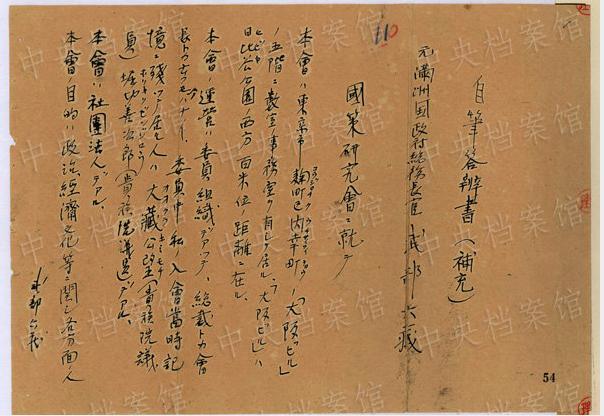 自筆答辯書(補充)
元滿洲国政府総務長官 武部六藏
110
國策研究會ニ就テ
本會ハ東京市麹町区内幸町ノ「大阪ビル」
ノ五階ニ数室ノ事務室ヲ有シテ居ル、「大阪ビル」ハ
日比谷公園ノ西方百米位ノ距離ニ在ル
本會ノ運営ハ委員組織デアッテ、総裁トカ會
長トカハナイ、委員中私ノ入會當時記
憶ニ残ッテ居ル人ハ大藏公望(貴族院議
員)堀切善次郎(貴族院議員)デアル、
本會ハ社團法人デアル、
本會ノ目的ハ政治経濟文化等ニ関シ各方面ノ人
武部六藏
54
中央档案馆